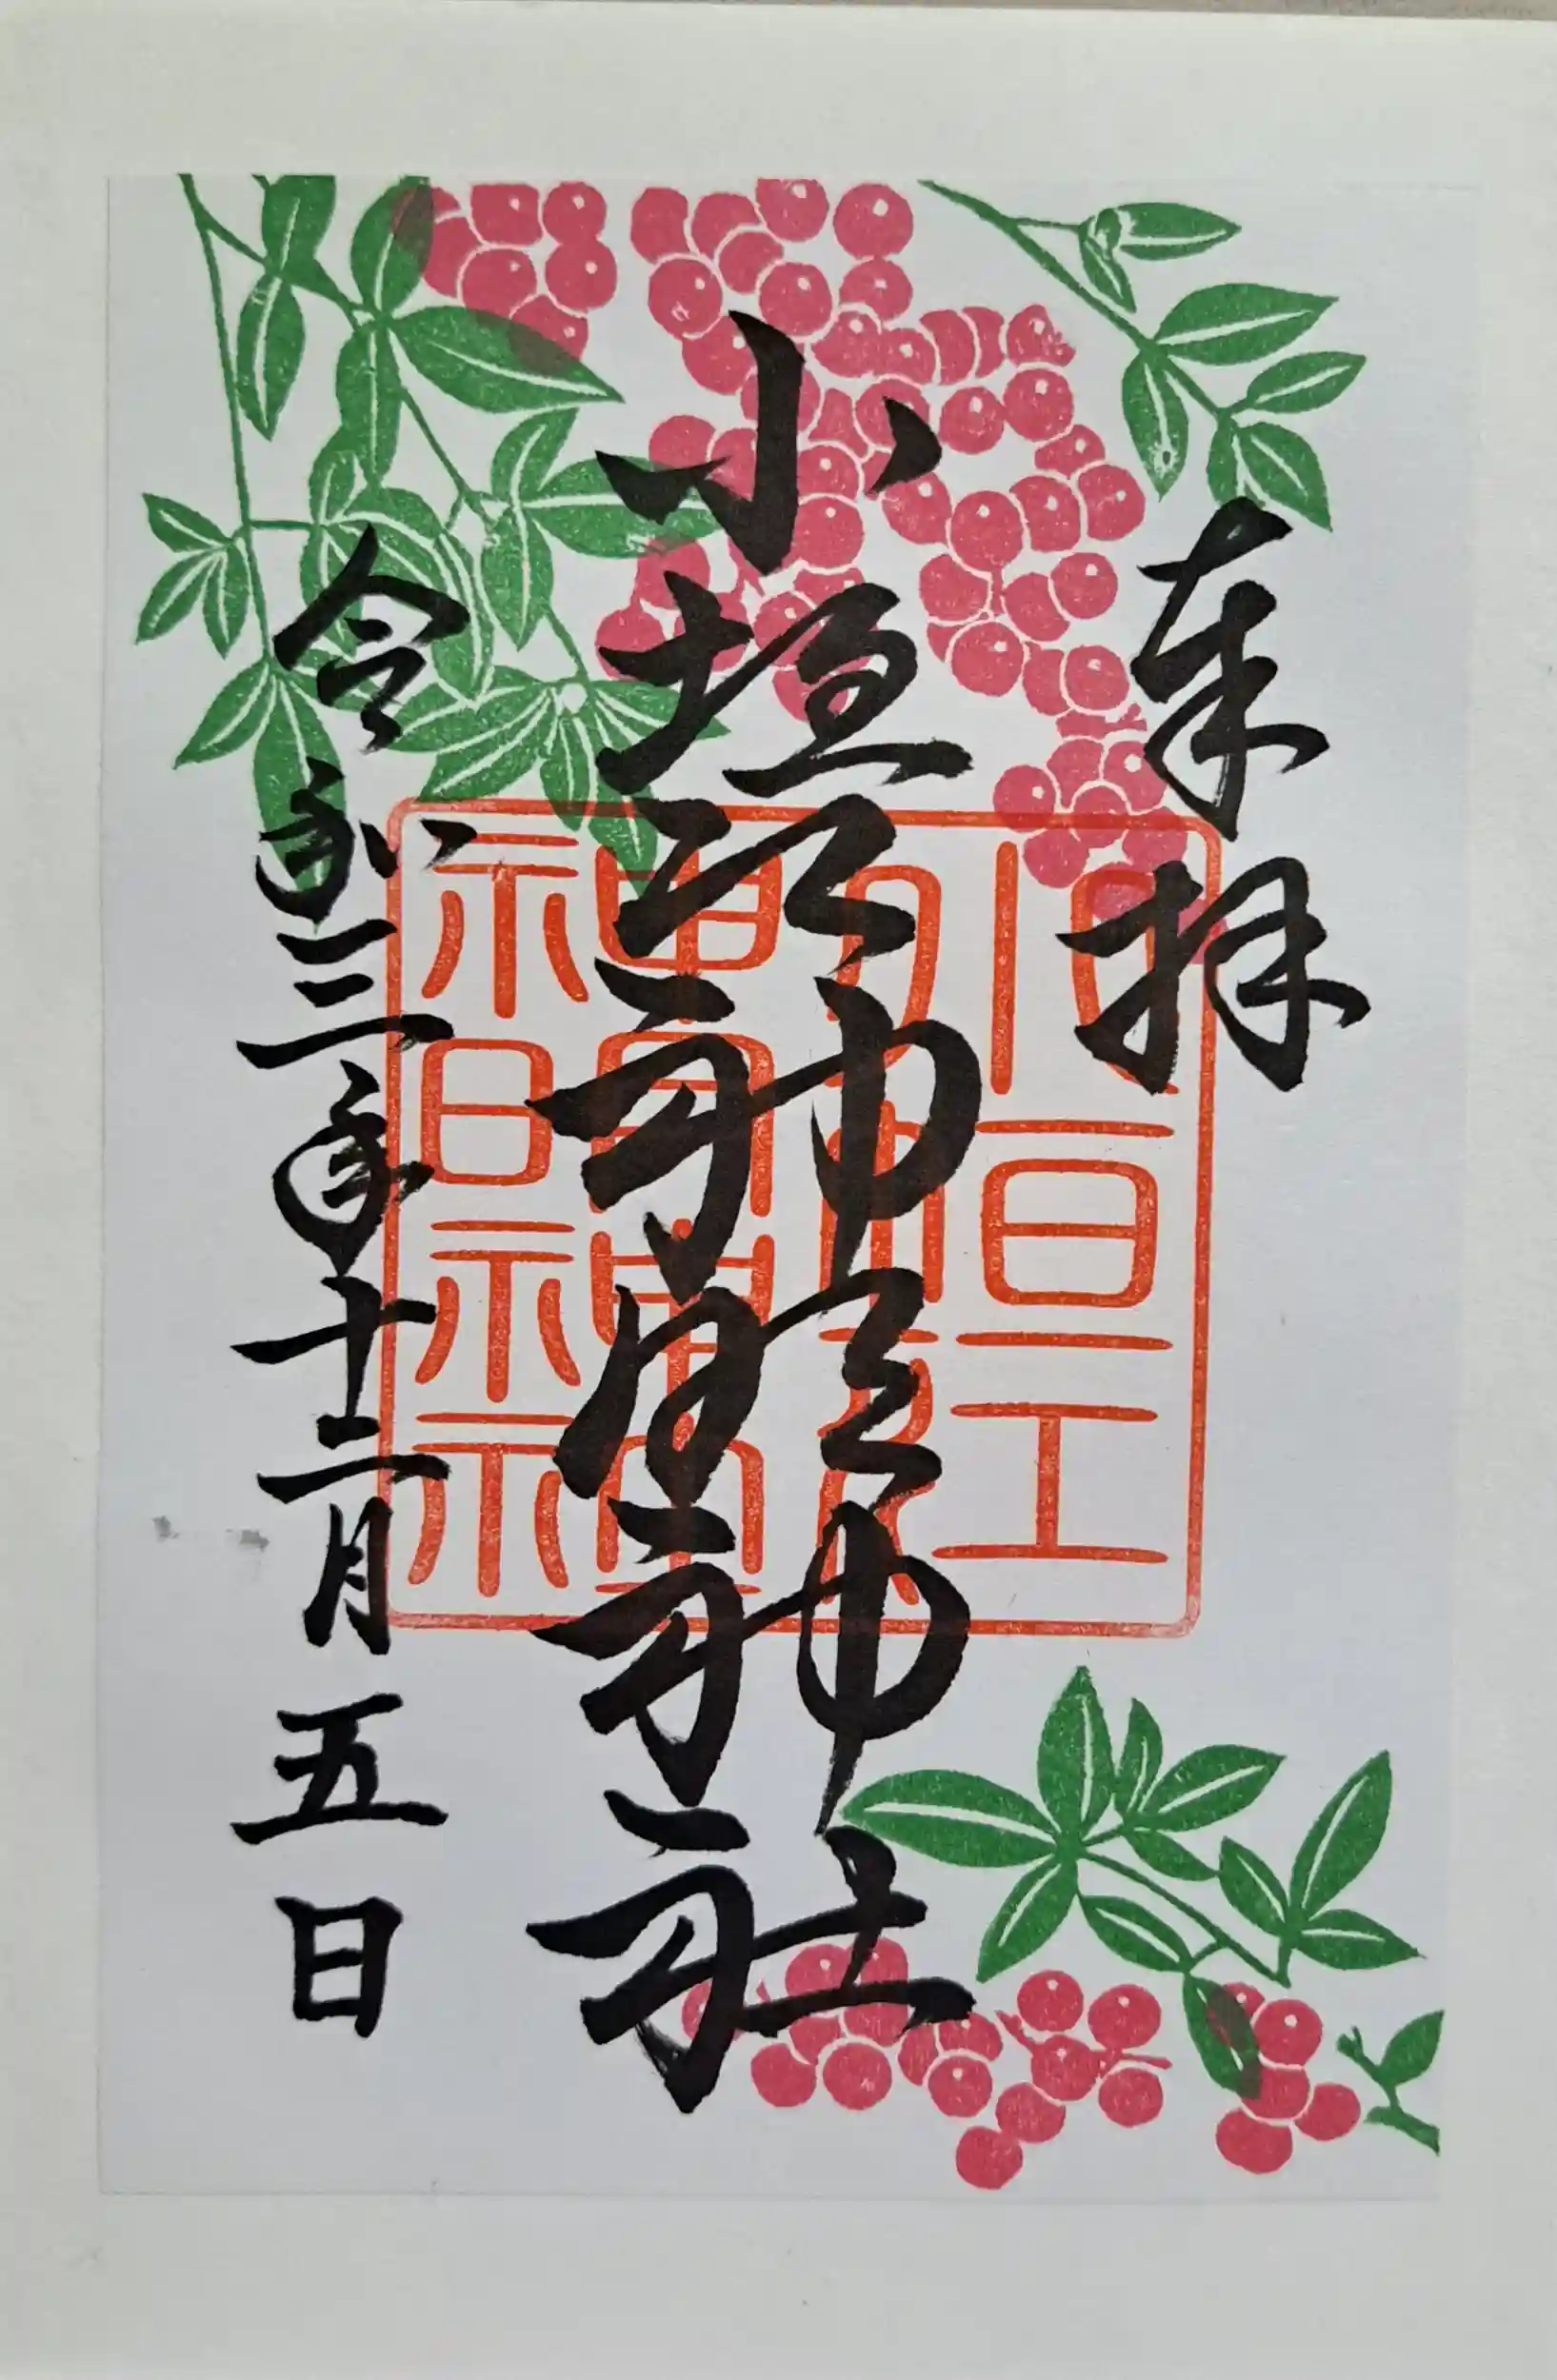 奉拝
小垣江神明神社
令和三年十二月五日
小垣江
神明神社